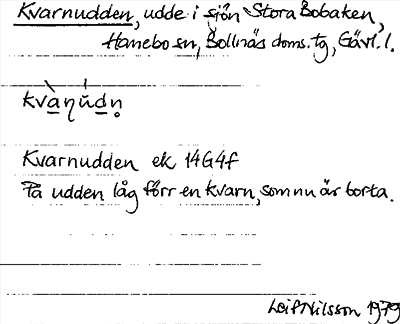 Kvarnudden, udde i sjön Stora Bobaken,
Hanebo sn, Bollnäs doms.tg, Gävl. l.
kvàṇúdṇ
Kvarnudden ek 14G4f
På udden låg förr en kvarn, som nu är borta.
Leif Nilsson 1979